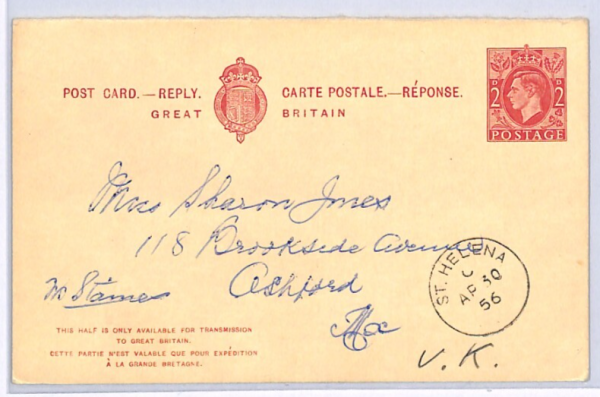 POST CARD.—REPLY. CARTE POSTALE.—RÉPONSE.
GREAT BRITAIN
D D
2 2
POSTAGE
Miss Sharon Jones
118 Brookside Avenue
Ashford
Mx
U.K.
ST. HELENA
C
AP 30
56
THIS HALF IS ONLY AVAILABLE FOR TRANSMISSION
TO GREAT BRITAIN.
CETTE PARTIE N'EST VALABLE QUE POUR EXPÉDITION
À LA GRANDE BRETAGNE.